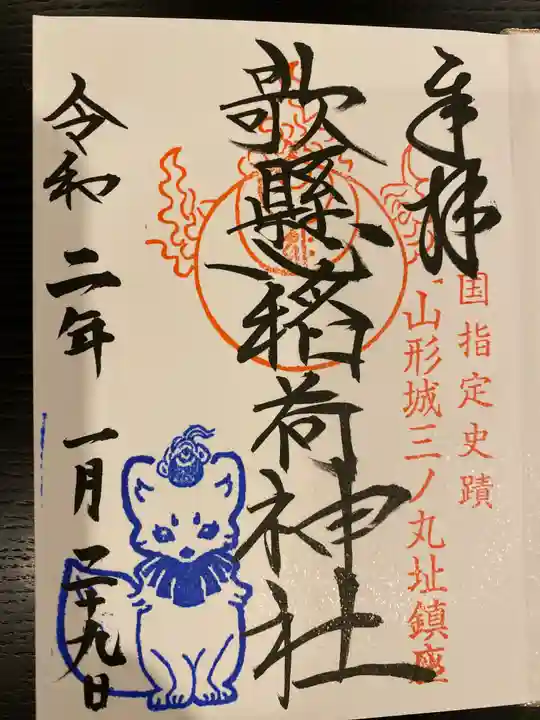 奉拝
国指定史蹟
山形城三ノ丸址鎮座
歌懸稲荷神社
令和二年一月二十九日